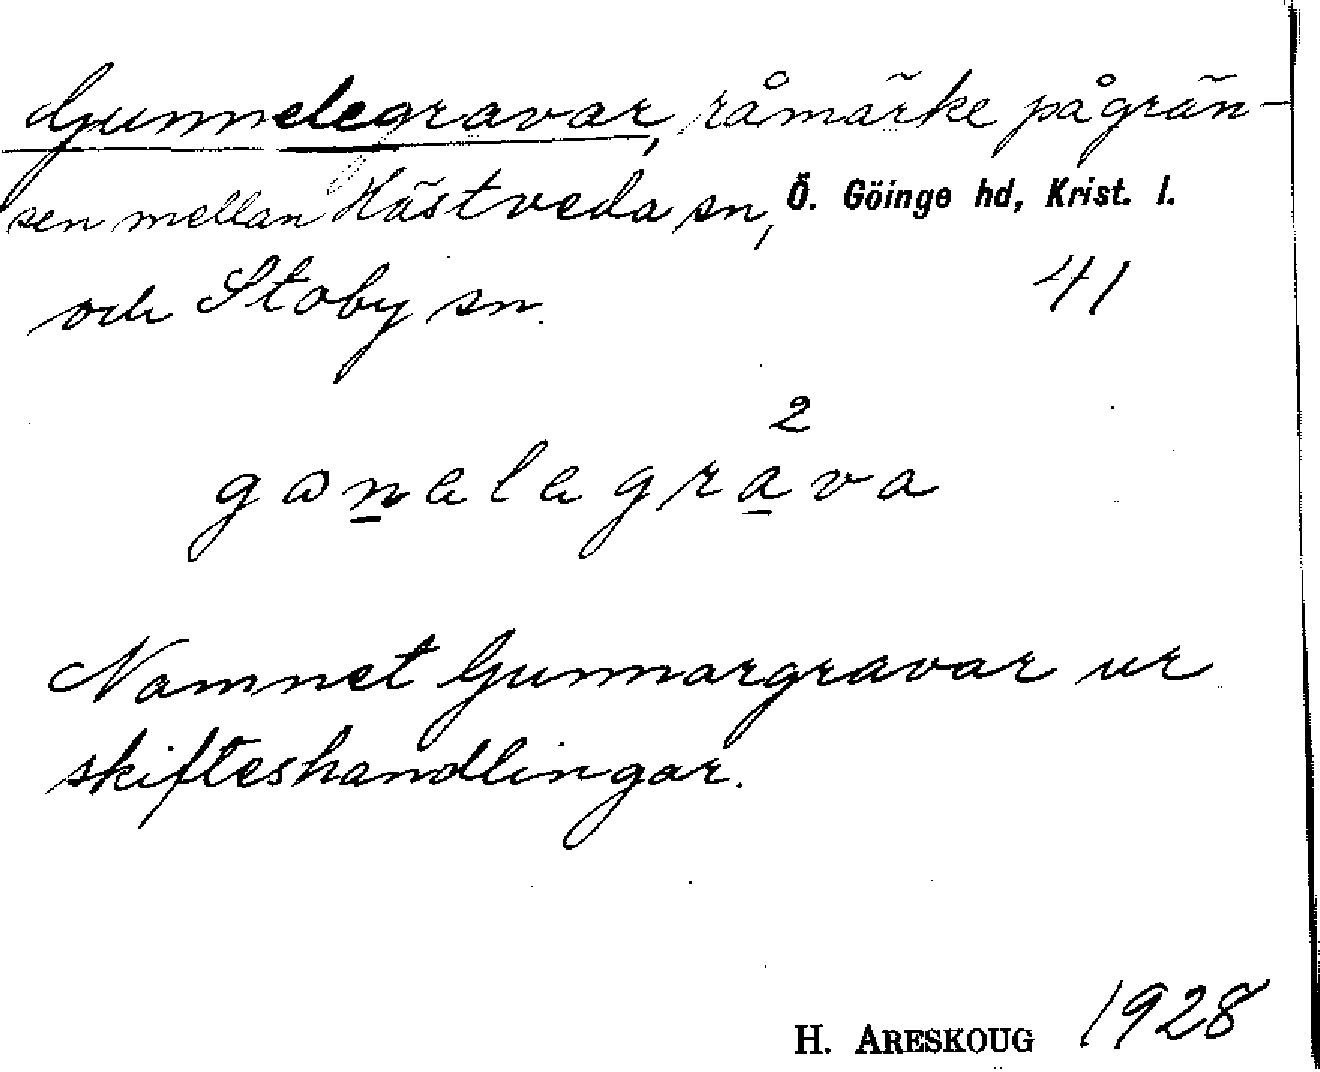 Gunnelegravar, råmärke på grän-
sen mellan Hästveda sn, Ö. Göinge hd, Krist. l.
och Stoby sn. 41
2
gɷnalagrava
Namnet Gunnargravar ur
skifteshandlingar.
H. ARESKOUG 1928